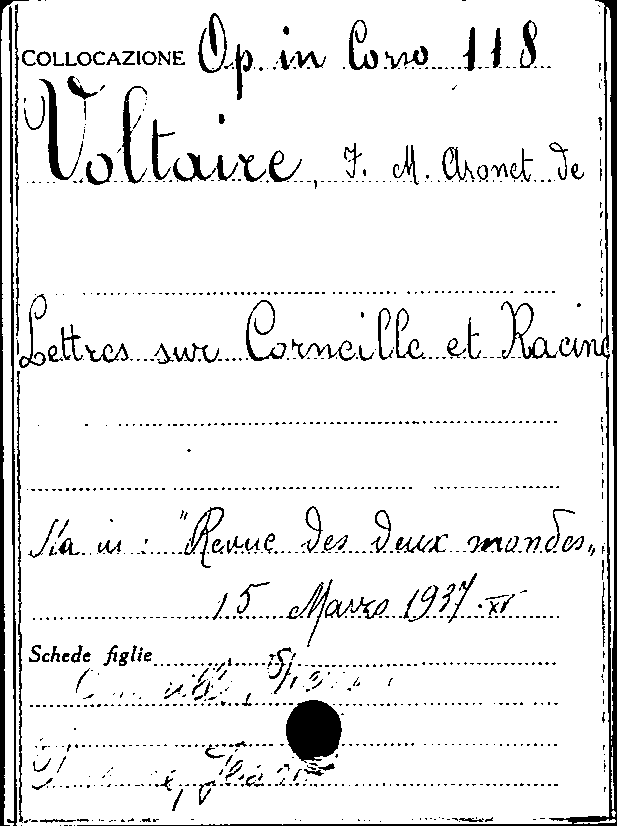 COLLOCAZIONE Op. in Corso 118
Voltaire, F. M. Aronet de
Lettres sur Corneille et Racine
Sta in: "Revue des deux mondes„
15 Marzo 1937.XV
Schede figlie